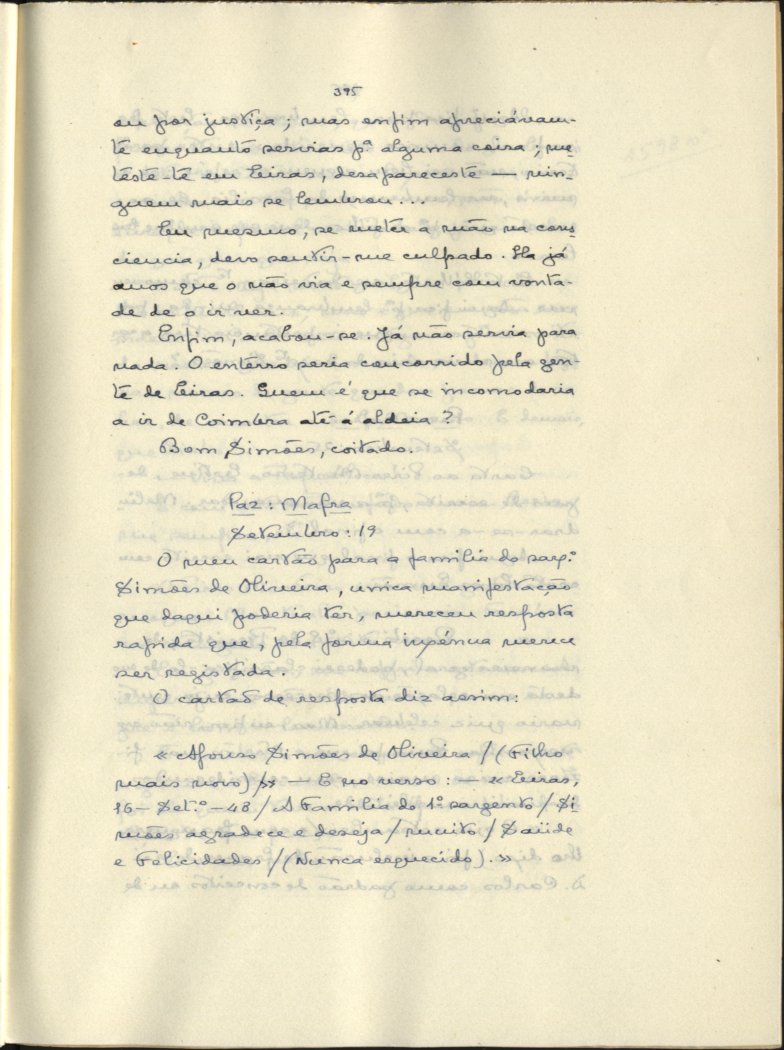 395
ou por justiça; mas enfim apreciávam-
te enquanto servias pª alguma coisa; me
teste-te em Eiras, desapareceste — nin-
guem mais se lembrou...
Eu mesmo, se meter a mão na cons
ciencia, devo sentir-me culpado. Ha já
anos que o não via e sempre com vonta-
de de o ir ver.
Enfim, acabou-se. Já não servia para
nada. O enterro seria concorrido pela gen-
te de Eiras. Quem é que se incomodaria
a ir de Coimbra até á aldeia?
Bom Simões, coitado.
Paz: Mafra
Setembro: 19
O meu cartão para a familia do sarg.º
Simões de Oliveira, unica manifestação
que daqui poderia ter, mereceu resposta
rapida que, pela forma ingénua merece
ser registada.
O cartão de resposta diz assim:
« Afonso Simões de Oliveira / (Filho
mais novo) » — E no verso: — « Eiras,
16 - Set.º - 48 / A Familia do 1º sargento / Si
mões agradece e deseja / muito / Saüde
e Felicidades / (Nunca esquecido). »